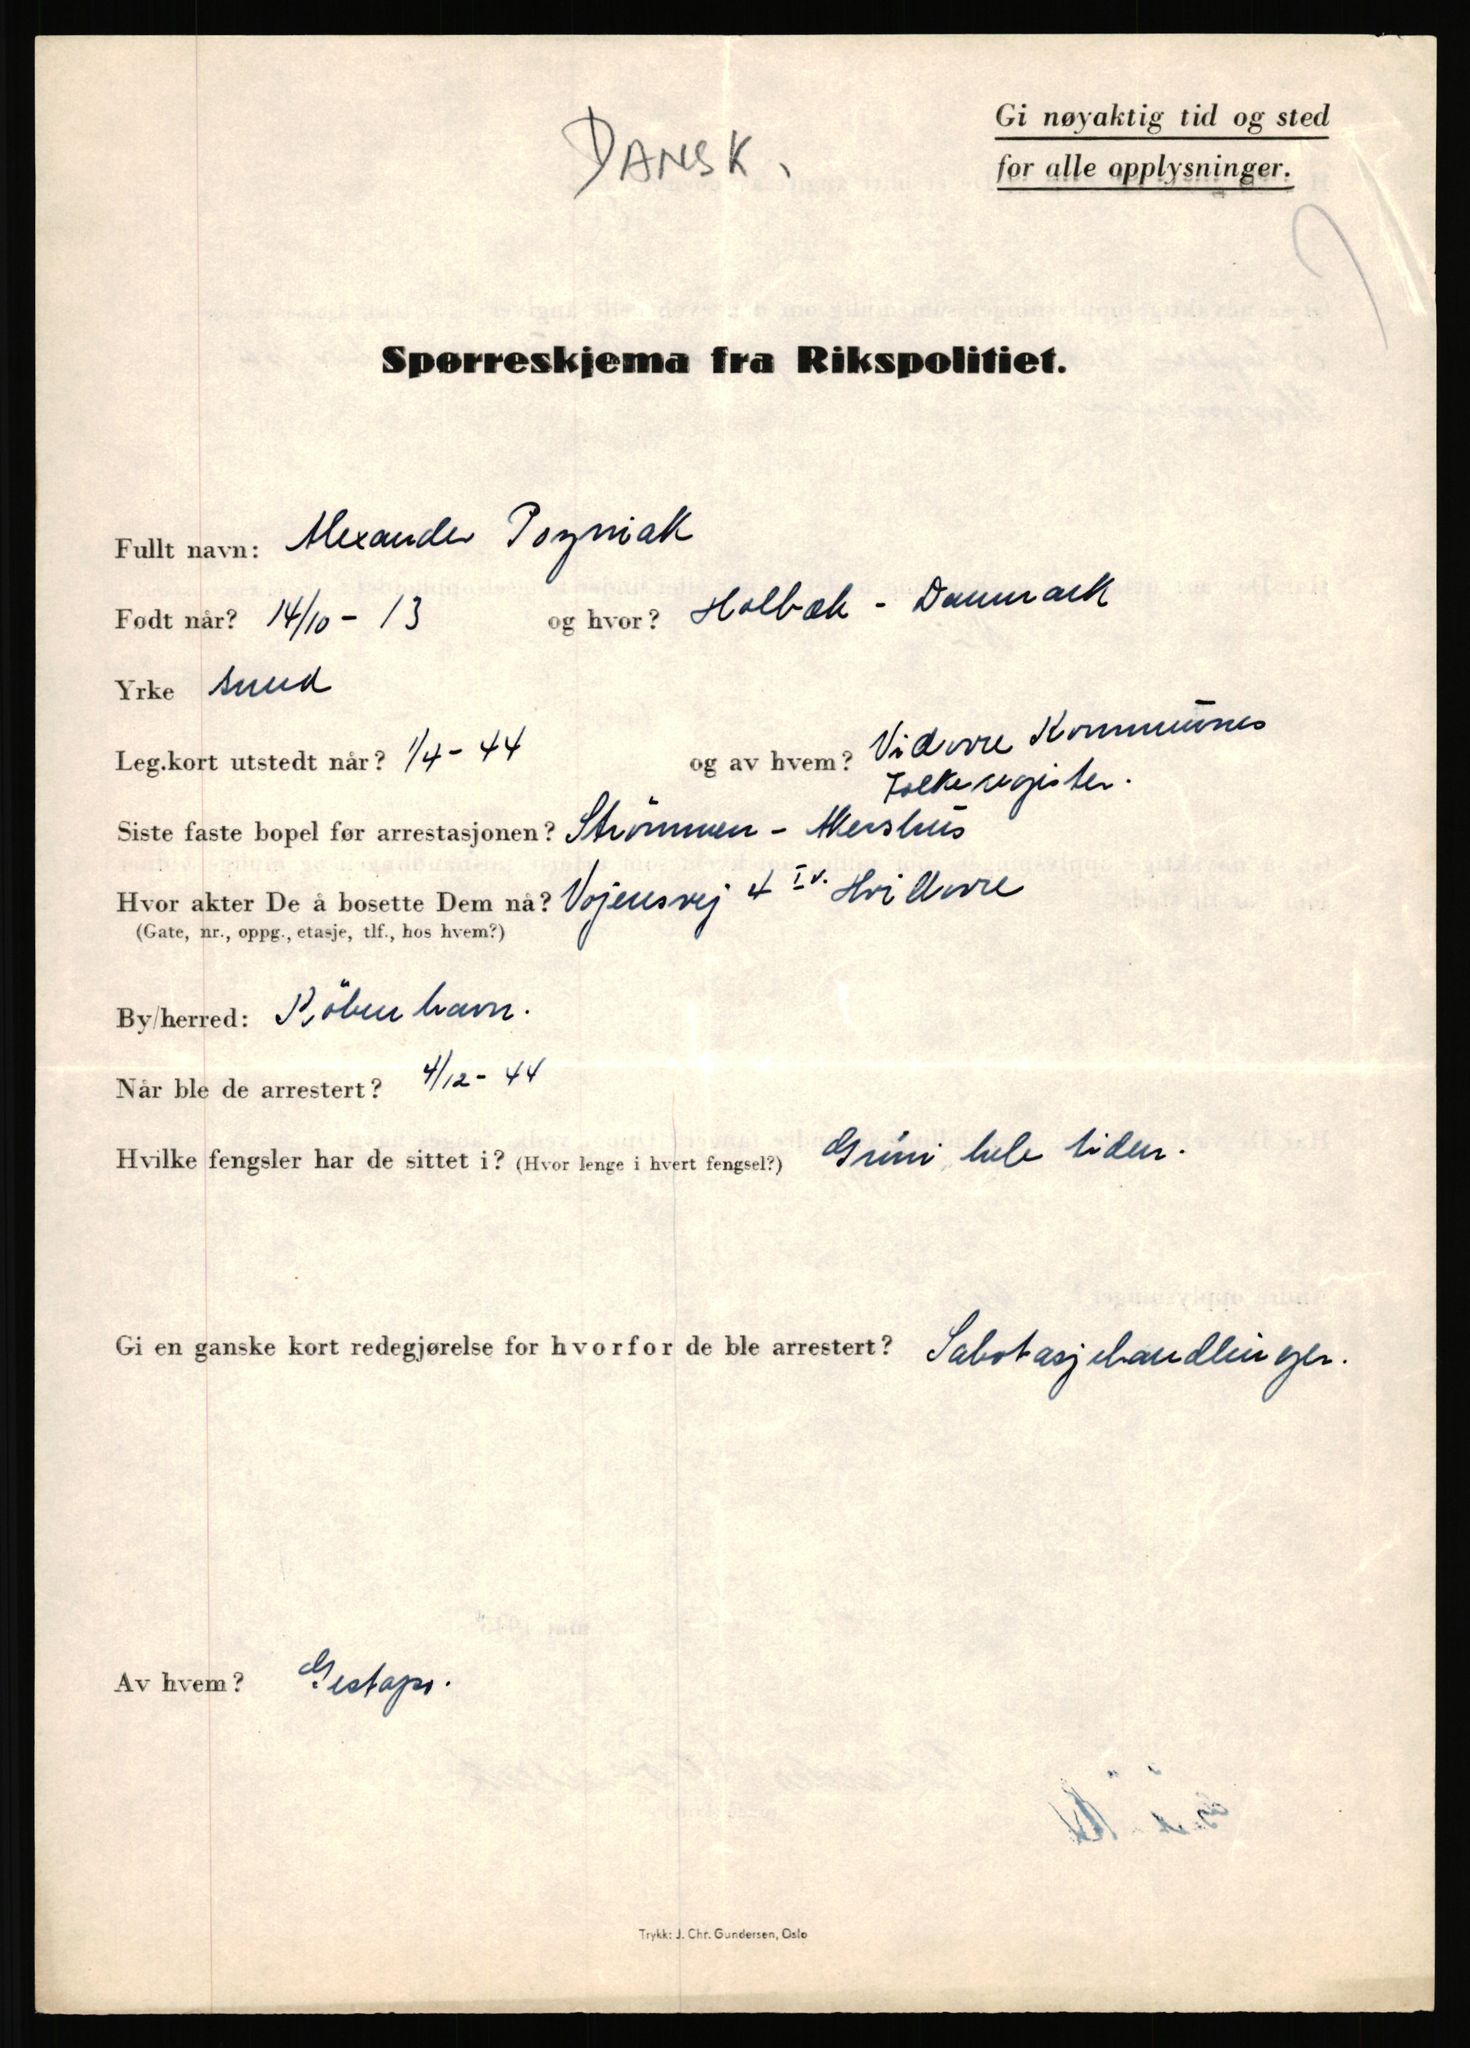 DANSK.
Gi nøyaktig tid og sted
for alle opplysninger.
Spørreskjema fra Rikspolitiet.
Fullt navn: Alexander Pozniak
Født når? 14/10 - 13 og hvor? Holbæk - Danmark
Yrke smed
Leg.kort utstedt når? 1/4 - 44 og av hvem? Vidovre Kommunes
Folkeregister.
Siste faste bopel før arrestasjonen? Strömmen - Akershus
Hvor akter De å bosette Dem nå? Vojensvej 4 I v. Hvidovre
(Gate, nr., oppg., etasje, tlf., hos hvem?)
By/herred: Köbenhavn.
Når ble de arrestert? 4/12 - 44
Hvilke fengsler har de sittet i? (Hvor lenge i hvert fengsel?) Grini hele tiden.
Gi en ganske kort redegjørelse for hvorfor de ble arrestert? Sabotasjehandlinger.
Av hvem? Gestapo.
Trykk: J. Chr. Gundersen, Oslo